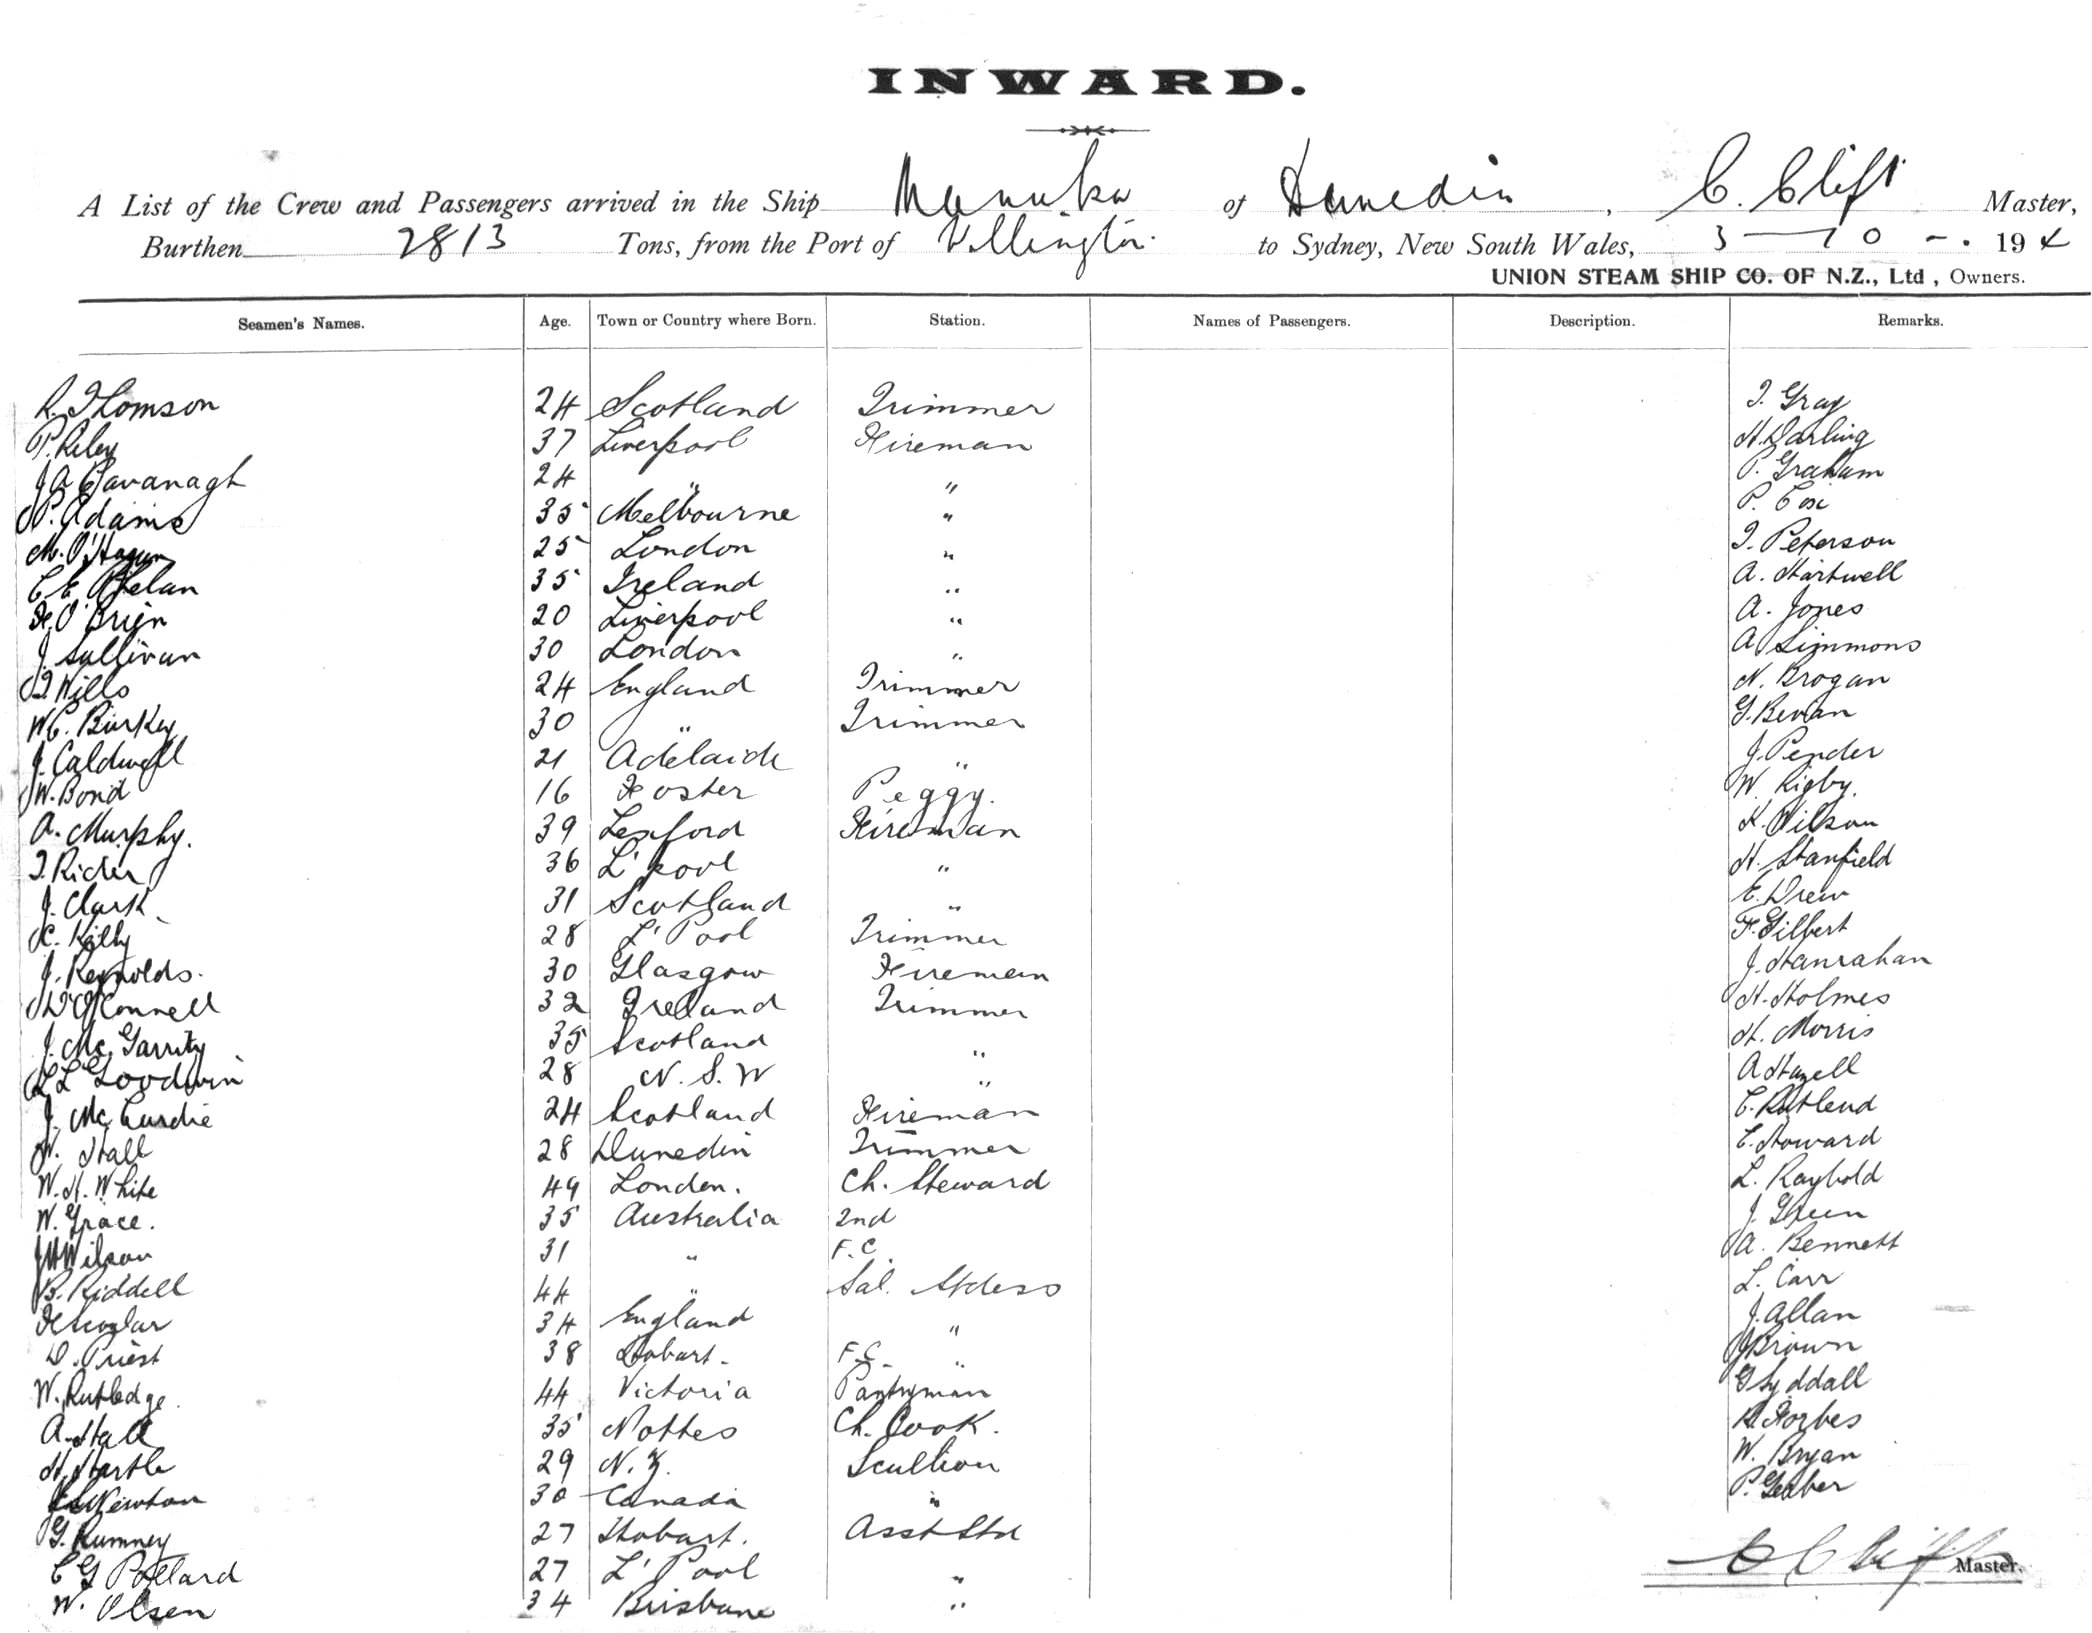 INWARD.
A List of the Crew and Passengers arrived in the Ship Manuka of Dunedin, C. Clift Master,
Burthen 2813 Tons, from the Port of Wellington to Sydney, New South Wales, 3-10-. 194
UNION STEAM SHIP CO. OF N.Z., Ltd, Owners.
Seamen's Names. Age. Town or Country where Born. Station. Names of Passengers. Description. Remarks.
R. Thomson 24 Scotland Trimmer T. Gray
P. Riley 37 Liverpool Fireman H. Darling
J A Cavanagh 24 " " P. Graham
P. Adams 35 Melbourne " P. Cox
M. O'Hagan 25 London " T. Peterson
C E Phelan 35 Ireland " A. Hartwell
F. O'Brien 20 Liverpool " A. Jones
J. Sullivan 30 London " A Simmons
T Wills 24 England Trimmer N. Brogan
W C. Burkey 30 " Trimmer G. Bevan
J. Caldwell 21 Adelaide " J. Pender
W. Bond 16 Foster Peggy. W Rigby.
A. Murphy. 39 Fireman K. Wilson
T. Rider 36 L'pool " H. Stanfield
J. Clark 31 Scotland " E. Drew
28 L'Pool Trimmer F. Gilbert
J. Reynolds. 30 Glasgow Fireman J. Hanrahan
D O'Connell 32 Ireland Trimmer H. Holmes
J. McGarrity 35 Scotland " H. Morris
L L Goodwin 28 N. S. W " A Hazell
J. McCurdie 24 Scotland Fireman C. Rutlend
N. Hall 28 Dunedin Trimmer C. Howard
W. H. White 49 London. Ch. Steward L. Raybold
W. Grace. 35 Australia 2nd J. Green
J H Wilson 31 " F.C. A. Bennett
B. Riddell 44 " Sal. Stdess L. Carr
F Scoular 34 England " J. Allan
D. Priest 38 Hobart. F.C. " J Brown
W. Rutledge. 44 Victoria Pantryman G Lyddall
A. Hall 35 Nottes Ch. Cook. R. Forbes
H. Hartle 29 N. Z. Scullion W. Bryan
Newton 30 Canada " P. Gerber
G. Rumney 27 Hobart. Asst Std
C G Pollard 27 L'Pool "
C Clift Master.
W. Olsen 34 Brisbane "